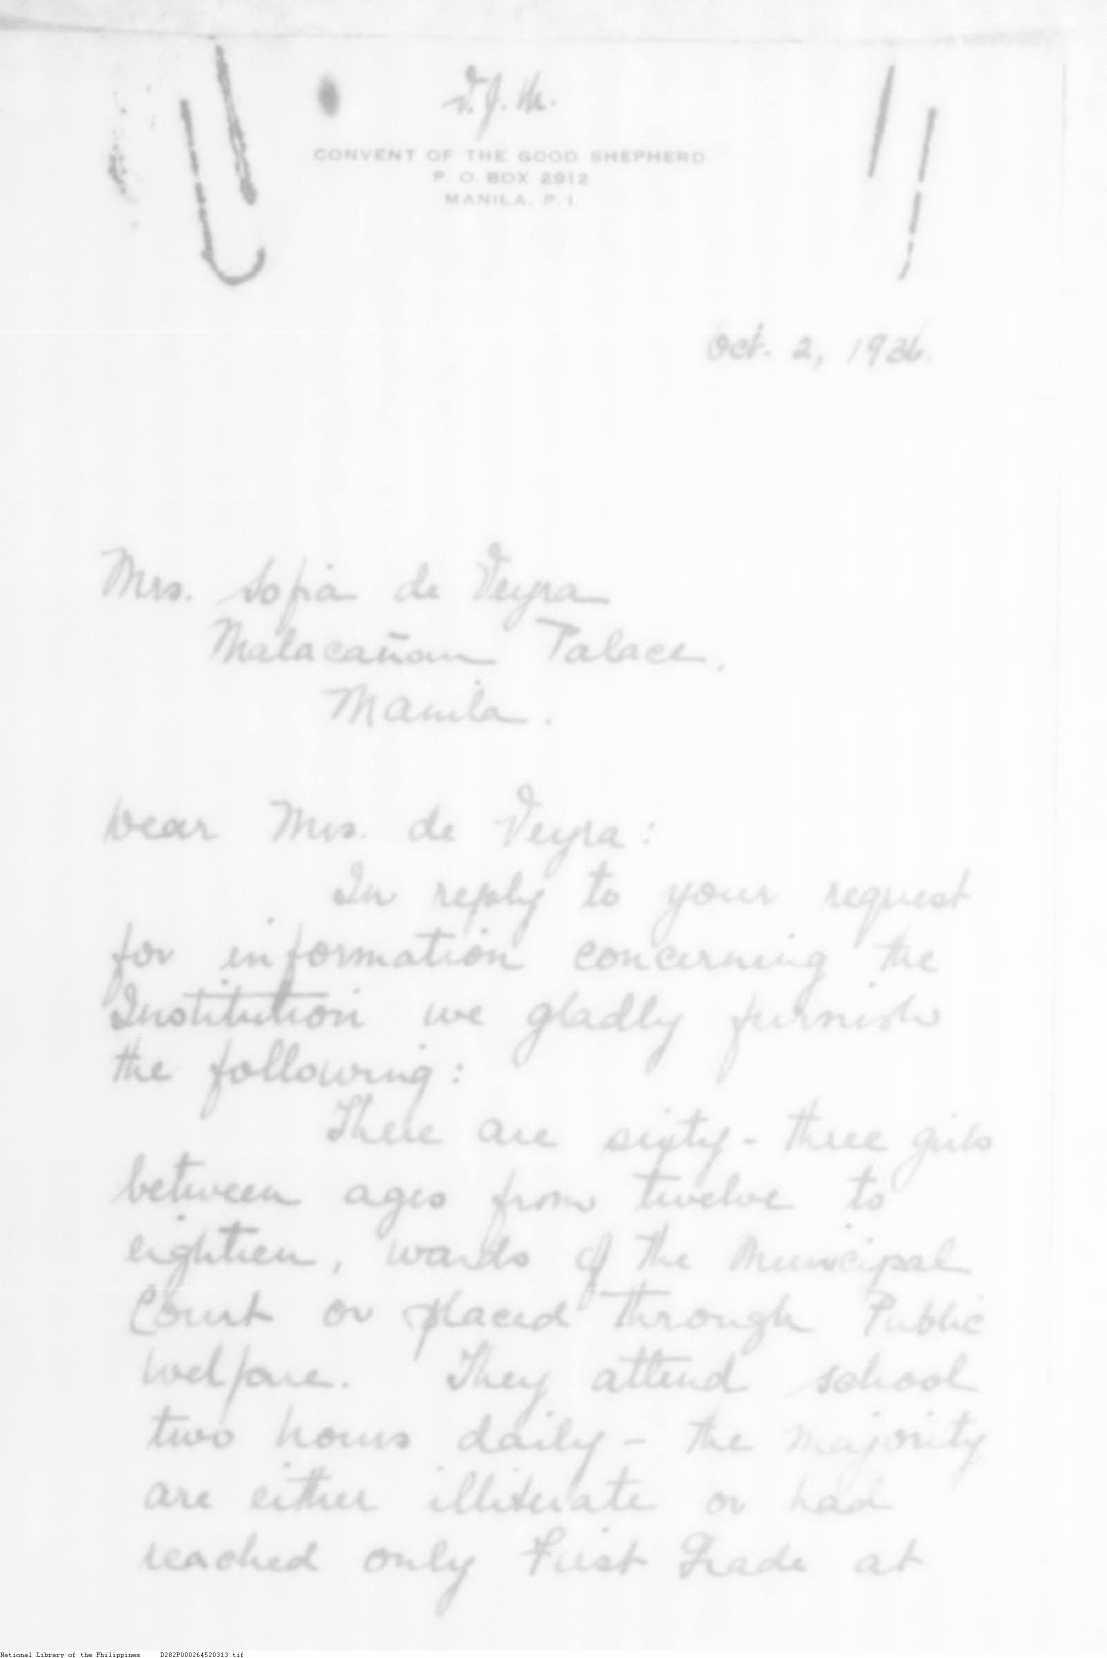 V.J.M.
CONVENT OF THE GOOD SHEPHERD
P. O. BOX 2912
MANILA, P. I.
Oct. 2, 1936.
Mrs. Sofia de Veyra
Malacañan Palace.
Manila.
Dear Mrs. de Veyra:
In reply to your request
for information concerning the
Institution we gladly furnish
the following:
There are sixty-three girls
between ages from twelve to
eighteen, wards of the Municipal
Court or placed through Public
Welfare. They attend school
two hours daily - the majority
are either illiterate or had
reached only First Grade at
National Library of the Philippines D282P000264520313.tif